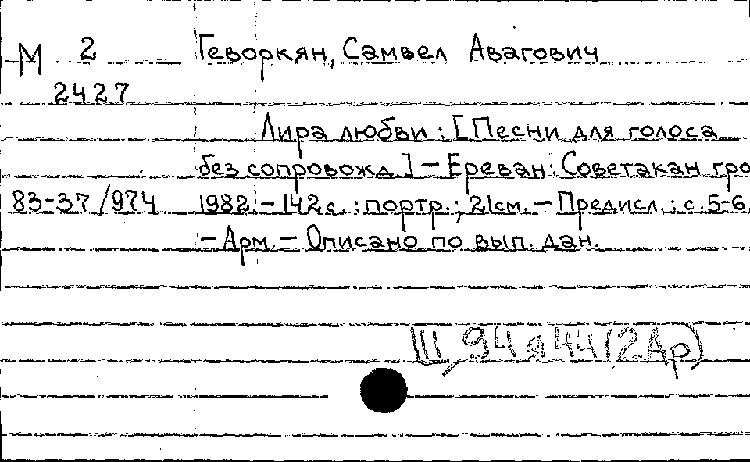 М 2 Геворкян, Самвел Авагович
2427
Лира любви : [Песни для голоса
без сопровожд.] – Ереван : Советакан гро
83-37/974 1982. – 142 с. : портр. ; 21 см. – Предисл. : с. 5-6.
– Арм. – Описано по вып. дан.
Щ 94я44(2Ар)